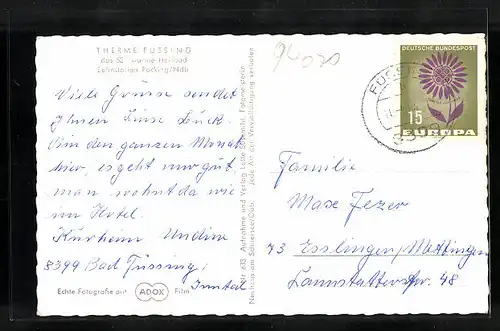 THERME FÜSSING
das 52° warme Heilbad
Bahnstation Pocking/Ndb.
94020
Viele Grüsse sendet
Ihnen Luise Lück.
Bin den ganzen Monat
hier, es geht mir gut,
man wohnt da wie
im Hotel.
Kurheim Undine
8399 Bad Füssing
Inntal
Echte Fotografie auf ADOX Film
Aufnahme und Verlag
Neuhaus am
Jede Art der Vervielfältigung verboten
DEUTSCHE BUNDESPOST
15
EUROPA
FÜSSING
Familie
Max Fezer
73 Esslingen/Mettingen
Cannstatterstr. 48